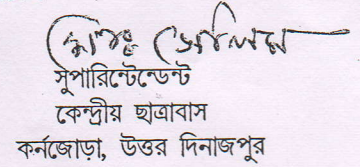 মোঃ সেলিম
সুপারিন্টেন্ডেন্ট
কেন্দ্রীয় ছাত্রাবাস
কর্নজোড়া, উত্তর দিনাজপুর